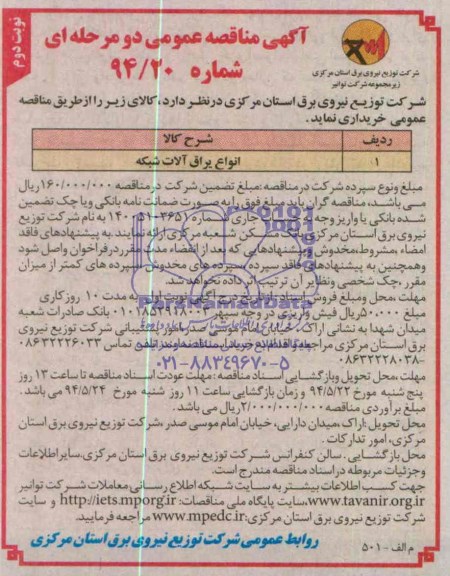 نوبت دوم
آگهی مناقصه عمومی دو مرحله ای
شماره ۹۴/۲۰
شرکت توزیع نیروی برق استان مرکزی
زیرمجموعه شرکت توانیر
شرکت توزیع نیروی برق استان مرکزی درنظر دارد، کالای زیر را ازطریق مناقصه
عمومی خریداری نماید.
ردیف شرح کالا
۱ انواع یراق آلات شبکه
مبلغ ونوع سپرده شرکت درمناقصه:مبلغ تضمین شرکت درمناقصه ۱۶۰/۰۰۰/۰۰۰ ریال
می باشد، مناقصه گران باید مبلغ فوق را به صورت ضمانت نامه بانکی ویا چک تضمین
شده بانکی یا واریز وجه به جاری شماره به نام شرکت توزیع
نیروی برق استان مرکزی بانک مسکن شعبه مرکزی ارائه نمایند.به پیشنهادهای فاقد
امضاء ،مشروط،مخدوش و پیشنهادهایی که بعد از انقضاء مدت مقرر درفراخوان واصل شود
وهمچنین به پیشنهادهای فاقد سپرده ،سپرده های مخدوش ،سپرده های کمتر از میزان
مقرر ،چک شخصی ونظایر آن ترتیب اثر داده نخواهد شد.
مهلت ،محل ومبلغ فروش اسناد:از تاریخ درج آگهی نوبت اول به مدت ۱۰ روز کاری
مبلغ ریال فیش واریزی در وجه سپهر بانک صادرات شعبه
میدان شهدا به نشانی اراک، خیابان امام موسی صدر،امور پشتیبانی شرکت توزیع نیروی
برق استان مرکزی مراجعه تلفن تماس ۰۸۶۳۲۲۲۶۰۳۳
-۰۸۶۳۲۲۲۸۰۳۸
۰۲۱-۸۸۳۴۹۶۷۰-۵
مهلت،محل تحویل وبازگشایی اسناد مناقصه :مهلت عودت اسناد مناقصه تا ساعت ۱۳ روز
پنج شنبه مورخ ۹۴/۵/۲۲ و زمان بازگشایی ساعت ۱۱ روز شنبه مورخ ۹۴/۵/۲۴ می باشد .
مبلغ برآوردی مناقصه ۲/۰۰۰/۰۰۰/۰۰۰ ریال می باشد .
محل تحویل :اراک،میدان دارایی، خیابان امام موسی صدر ،شرکت توزیع نیروی برق استان
مرکزی، امور تدارکات .
محل بازگشایی . سالن کنفرانس شرکت توزیع نیروی برق استان مرکزی.سایراطلاعات
وجزئیات مربوطه دراسناد مناقصه مندرج است.
جهت کسب اطلاعات بیشتر به سایت شبکه اطلاع رسانی معاملات شرکت توانیر
www.tavanir.org.ir،سایت پایگاه ملی مناقصات: http://iets.mporg.ir و سایت
شرکت توزیع نیروی برق استان مرکزی:www.mpedc.ir مراجعه فرمایید.
م الف - ۵۰۱ روابط عمومی شرکت توزیع نیروی برق استان مرکزی